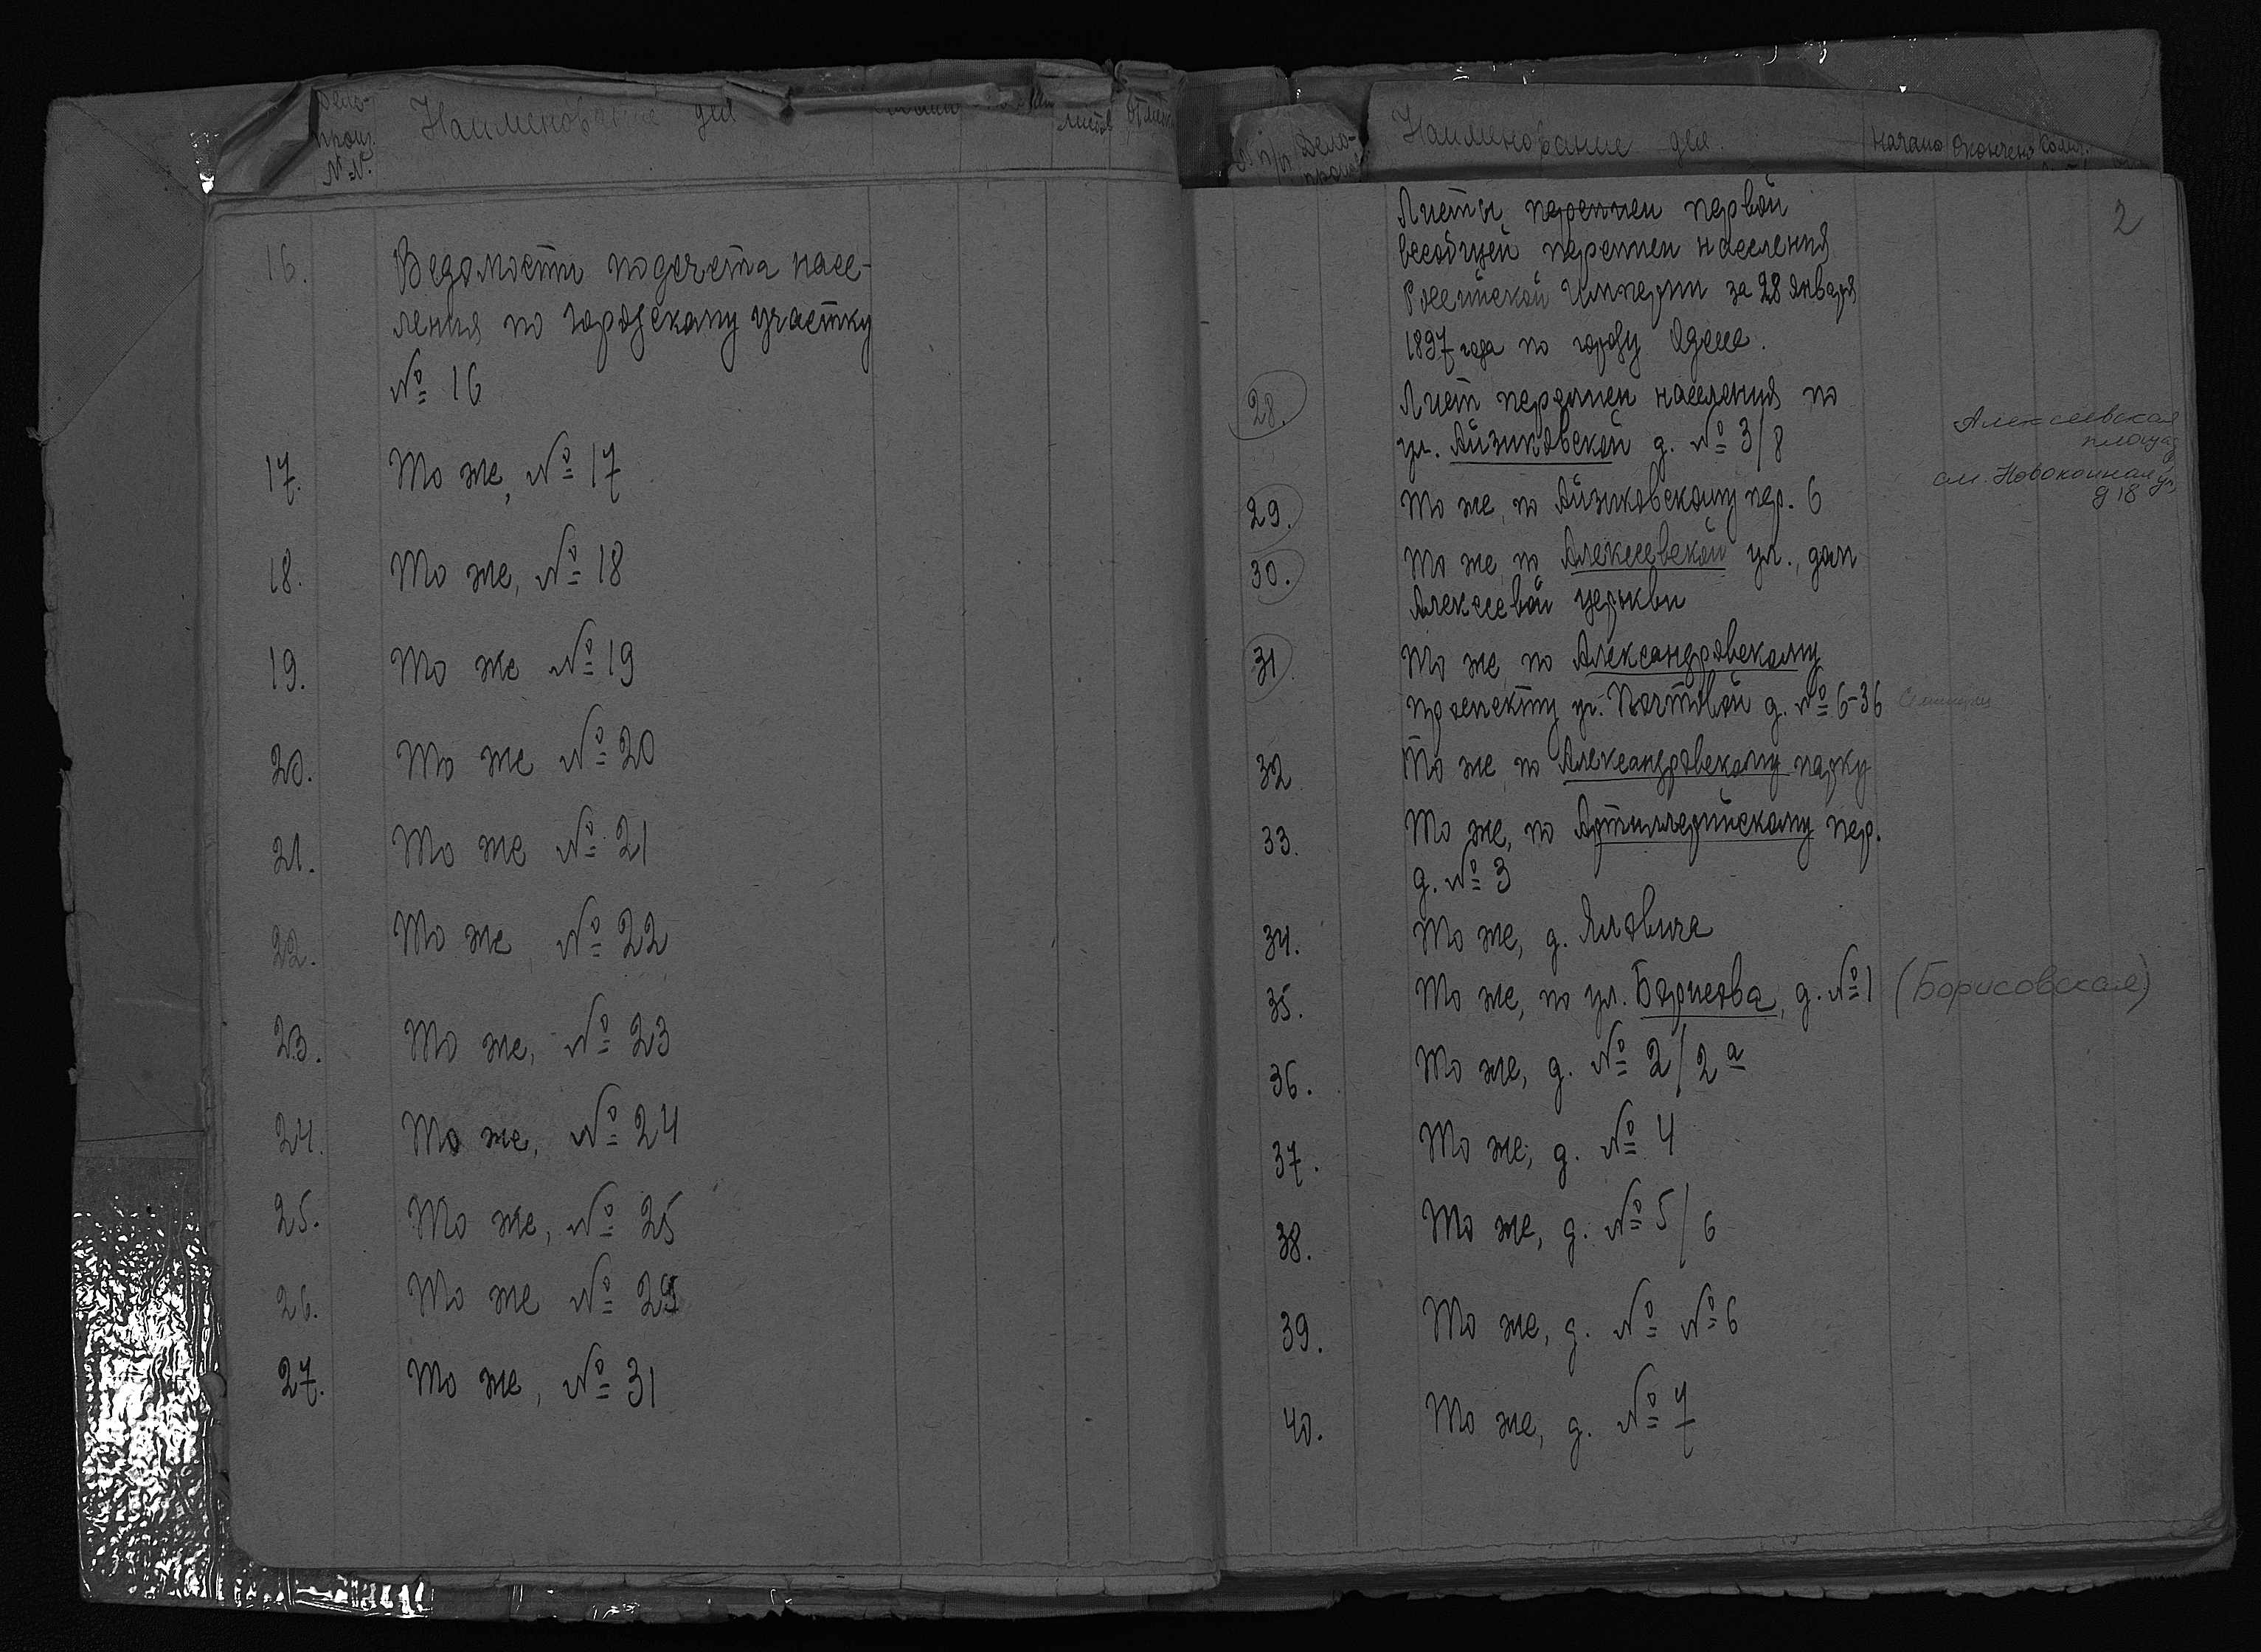 Дело-
произ.
№№
Наименование дел
листов
16.
Ведомости подсчета насе-
ления по городскому участку
№ 16
17.
То же, № 17
18.
То же, № 18
19.
То же № 19
20.
То же № 20
21.
То же № 21
22.
То же № 22
23.
То же, № 23
24.
То же, № 24
25.
То же, № 25
26.
То же № 29
27.
То же, № 31
№ п/п
Дело-
произ.
Наименование дел.
Начало
Окончено
2
Листы переписи первой
всеобщей переписи населения
Российской Империи за 28 января
1897 года по городу Одессе.
28.
Лист переписи населения по
ул. Айзиковской д. № 3/8
29.
То же, по Айзиковскому пер. 6
30.
То же, по Алексеевской ул., дом
Алексеевой церькви
Алексеевская
площад
см. Новоконная ул,
д 18
31.
То же, по Александровскому
проспекту уг. Почтовой д. № 6-36
32
То же, по Александровскому парку
33.
То же, по Артиллерийскому пер.
д. № 3
34.
То же, д. Яловича
35.
То же, по ул. Борисова, д. № 1 (Борисовская)
36.
То же, д. № 2/2а
37.
То же, д. № 4
38.
То же, д. № 5/6
39.
То же, д. № № 6
40.
То же, д. № 7